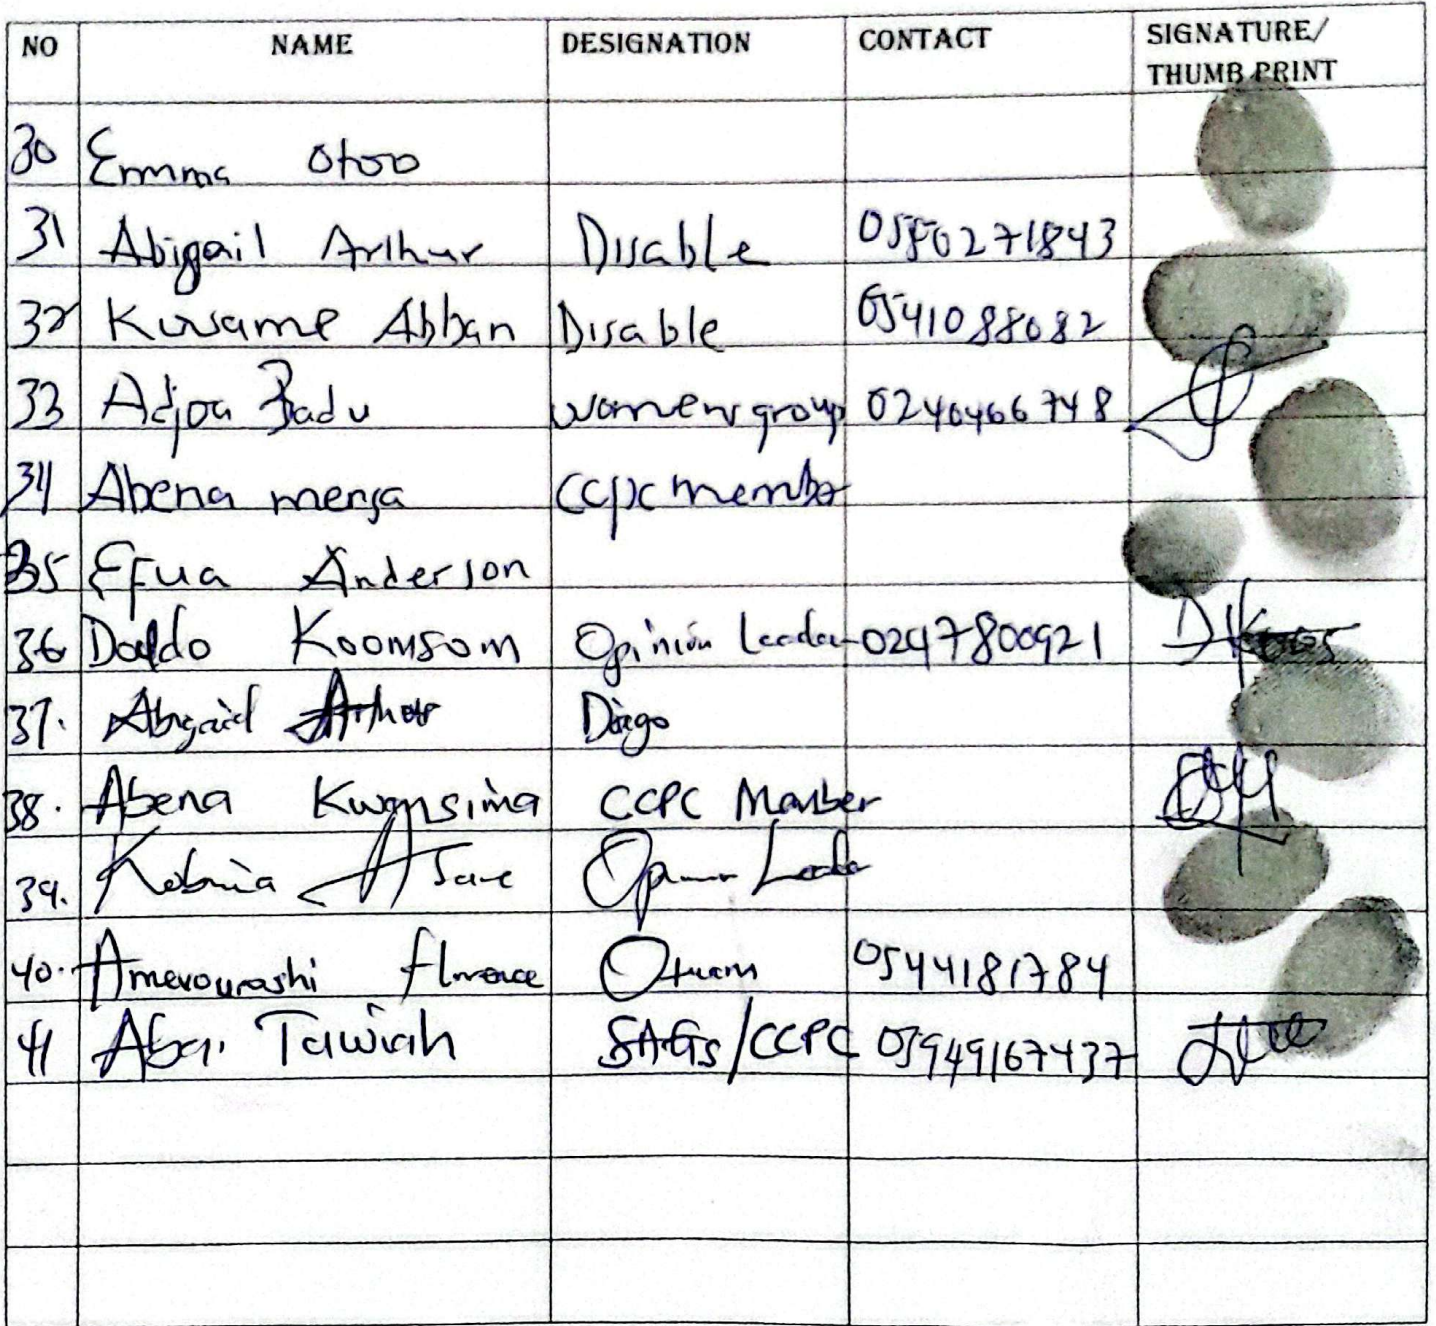 NO NAME DESIGNATION CONTACT SIGNATURE/
THUMB PRINT
30 Emma Otoo
31 Abigail Arthur Disable 0550271843
32 Kwame Abban Disable 0541088082
33 Adjoa Badu women group 0240466748
34 Abena mensa CCPC member
35 Efua Anderson
36 Koomsom Opinion Leader 0247800921
37. Abigail Arthur
38. Abena Kwansima CCPC Member
39. Kobina Asare Opinion Leader
40. Florence Otuam 0544181784
41 Aba Tawiah /CCPC